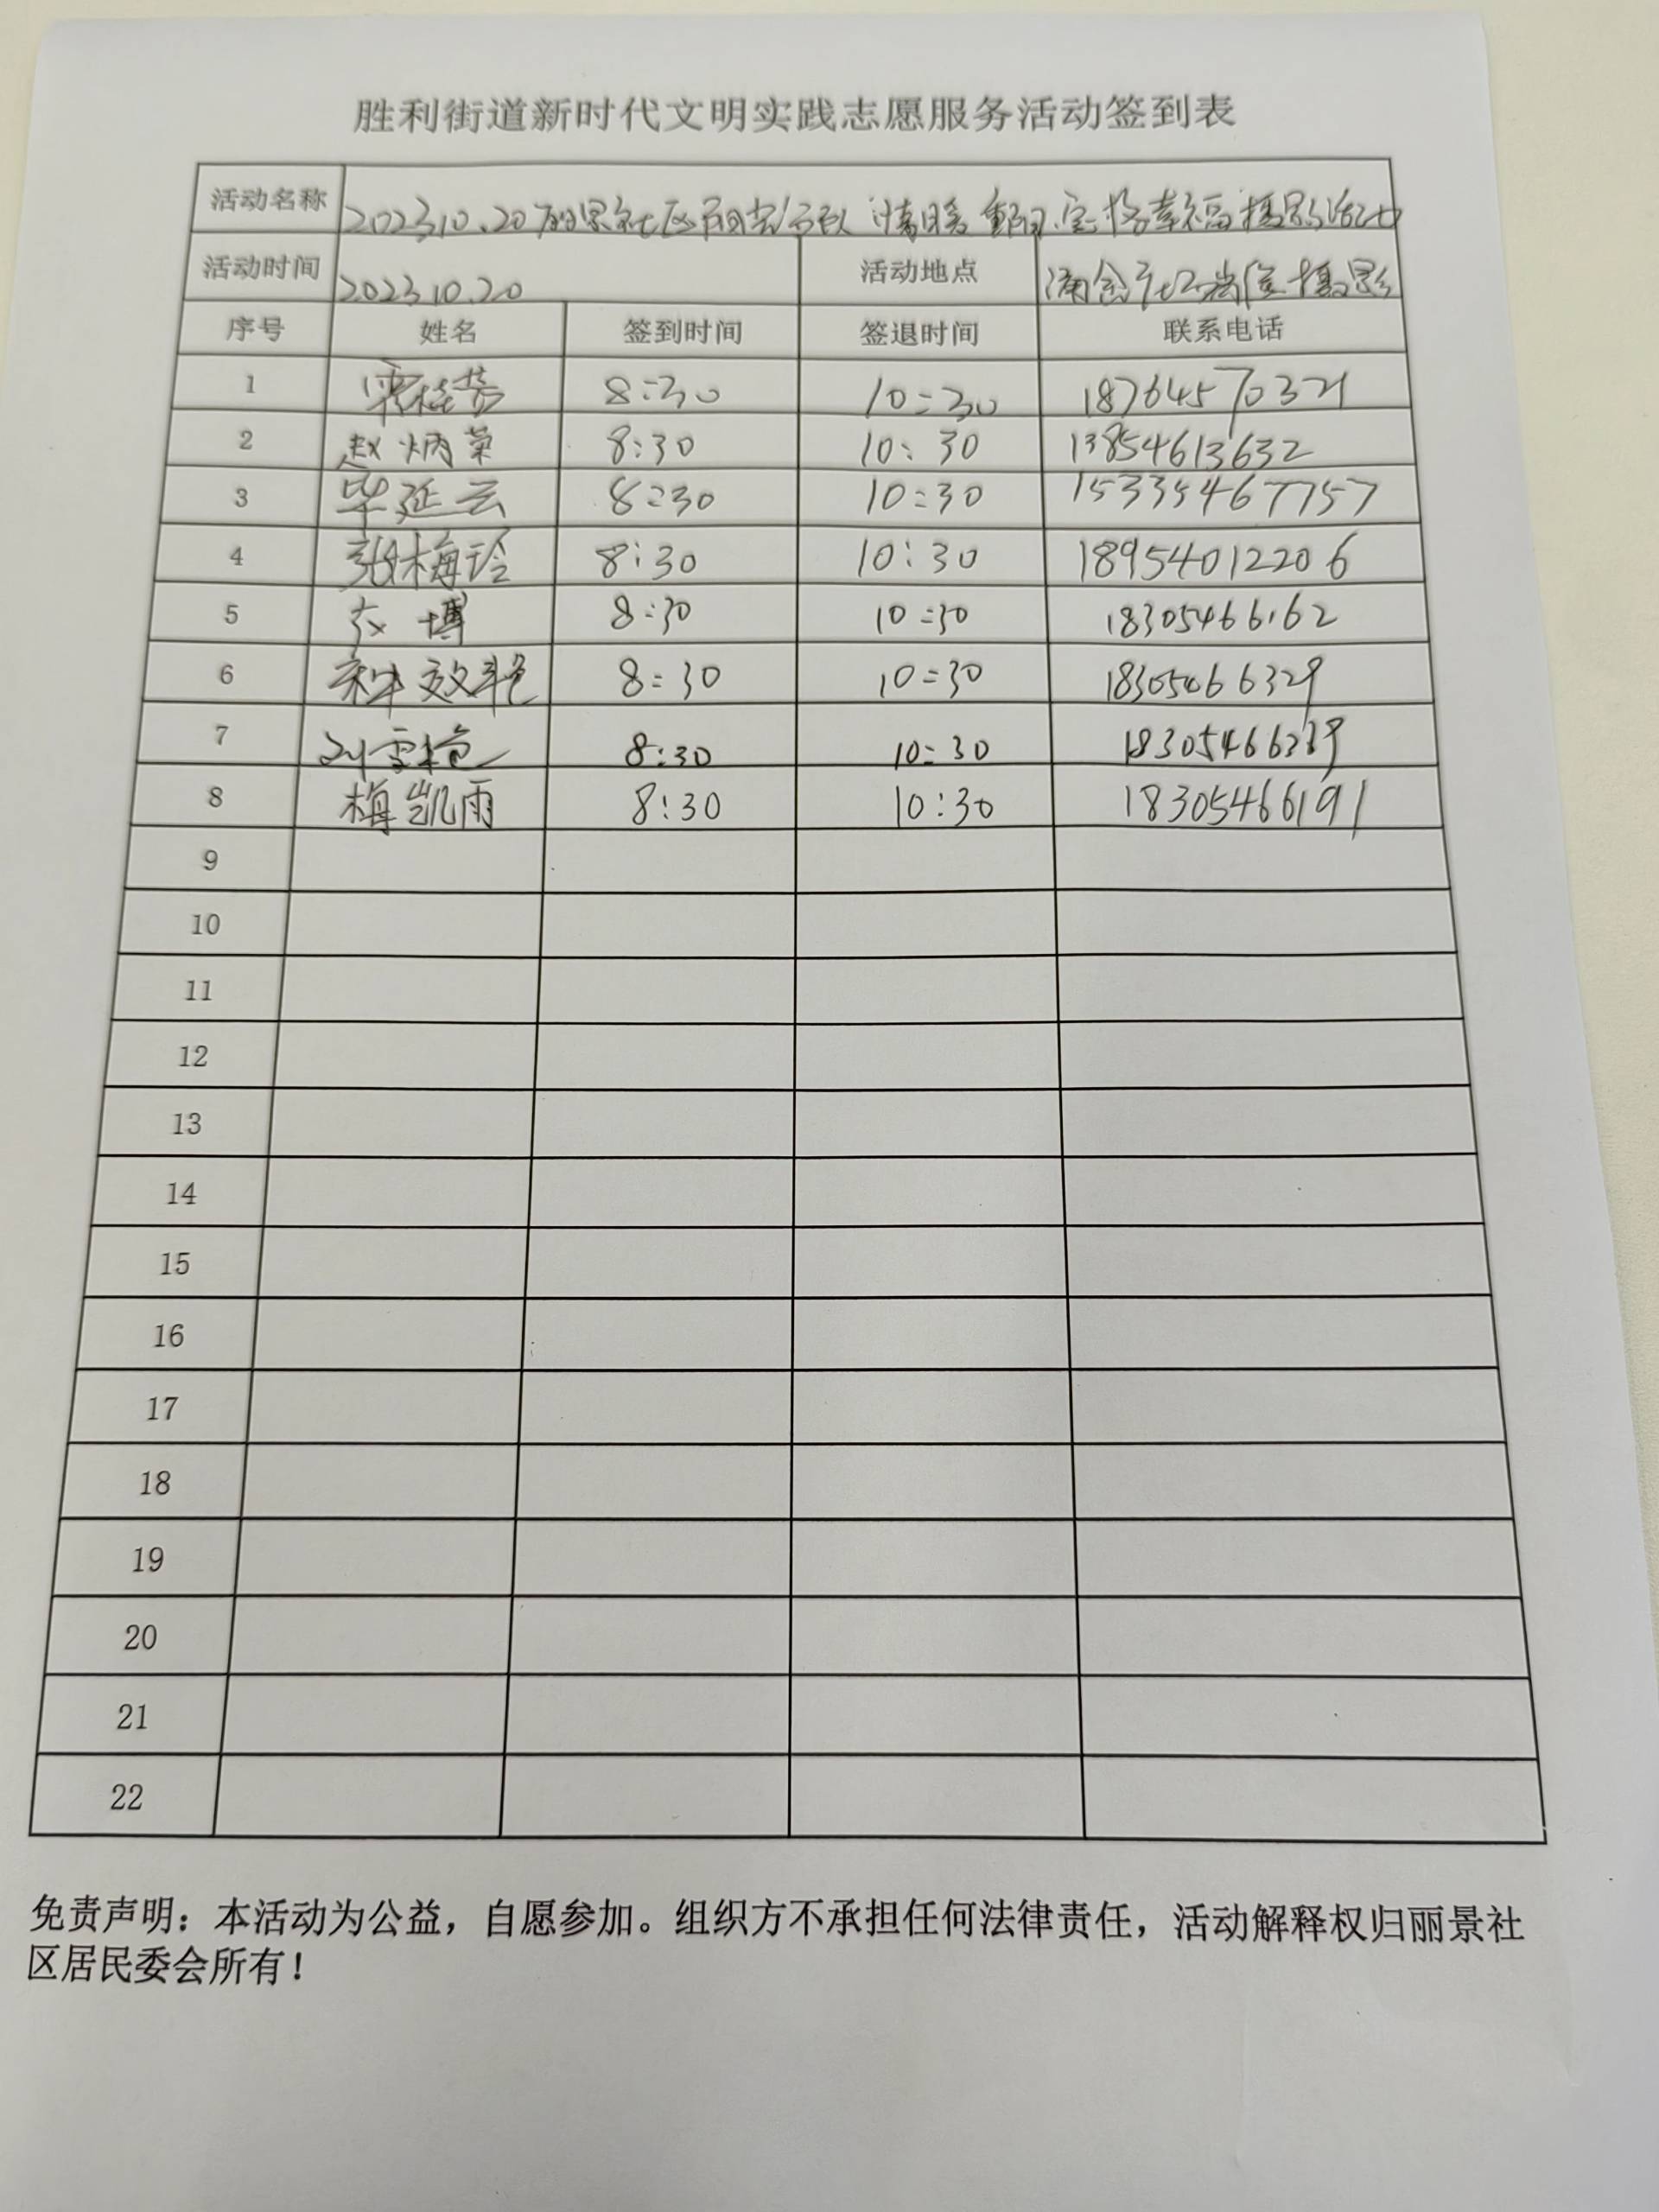 胜利街道新时代文明实践志愿服务活动签到表
活动名称 2023.10.20 丽景社区 情暖重阳.定格幸福摄影活动
活动时间 2023.10.20 活动地点 摄影
序号 姓名 签到时间 签退时间 联系电话
1 桂芳 8:30 10:30 18764570321
2 赵炳荣 8:30 10:30 13854613632
3 毕延云 8:30 10:30 15335467757
4 张梅玲 8:30 10:30 18954012206
5 博 8:30 10:30 18305466162
6 效艳 8:30 10:30 18305466329
7 刘雪艳 8:30 10:30
8 梅凯雨 8:30 10:30 18305466191
9
10
11
12
13
14
15
16
17
18
19
20
21
22
免责声明：本活动为公益，自愿参加。组织方不承担任何法律责任，活动解释权归丽景社
区居民委会所有！